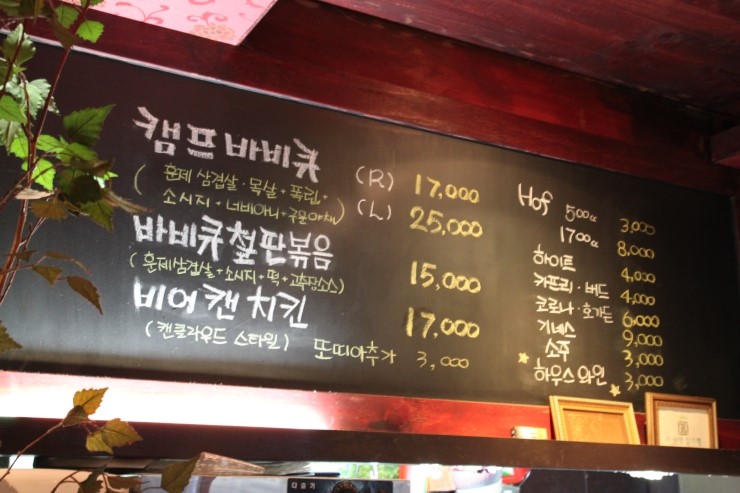 캠프바비큐
(R) 17,000
(훈제삼겹살·목살+폭립+
소시지+너비아니+구운야채)
(L) 25,000
바비큐철판볶음
(훈제삼겹살+소시지+떡+고추장소스) 15,000
비어캔치킨 17,000
(캔클라우드 스타일) 또띠아추가 3,000
Hof 500cc 3,000
1700cc 8,000
하이트 4,000
카프리·버드 4,000
코로나·호가든 6,000
기네스 9,000
소주 3,000
하우스와인 3,000